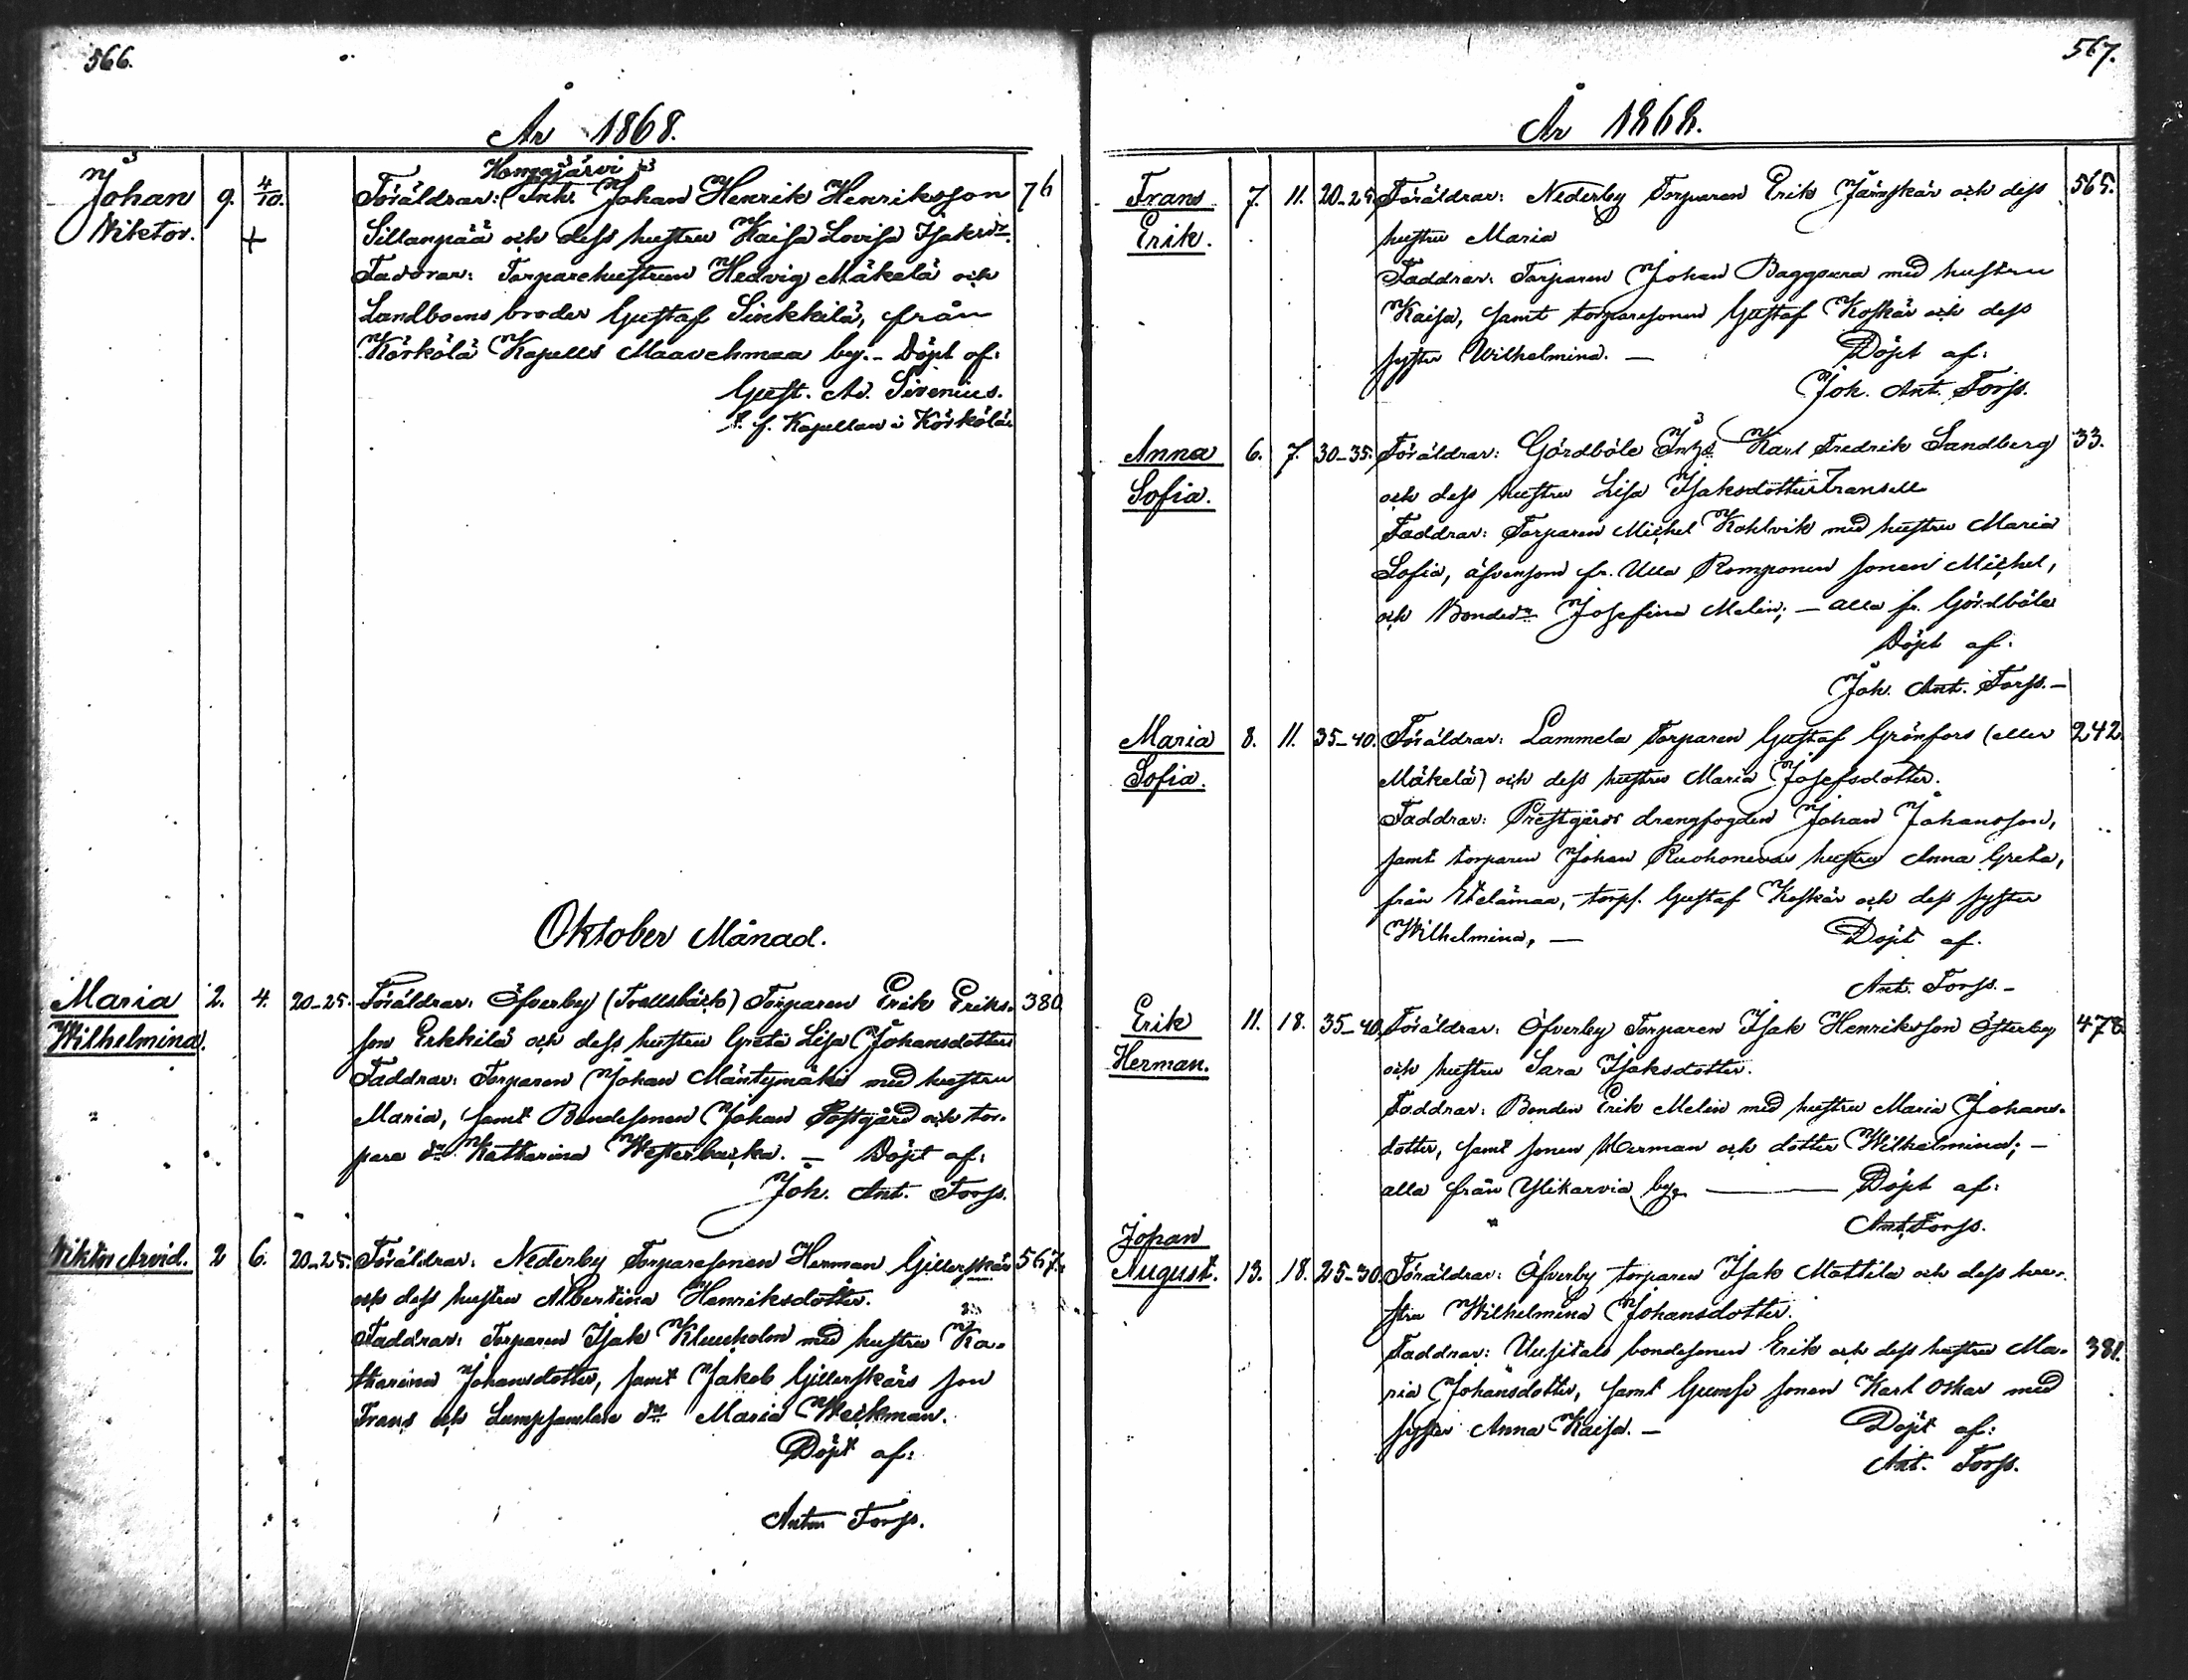 566.
År 1868.
Honajärvi
Johan 9. 4/10. Föräldrar: Inh. Johan Henrik Henriksson 76
Wiktor. + Sillanpää och dess hustru Kaisa Lovisa Isaksdr.
Faddrar: Torparehustrun Hedvig Mäkelä och
Landboens broder Gustaf Sirkkilä, från
Körkölä Kapells Maavehmaa by. - Döpt af:
Gust. Ad. Sirenius.
t. f. Kapellan i Körkölä.
Oktober Månad.
Maria 2. 4. 20-25. Föräldrar: Öfverby (Trollsbäck) Torparen Erik Eriks- 380
Wilhelmina. son Erkkilä och dess hustru Greta Lisa Johansdotter
Faddrar: Torparen Johan Mäntymäki med hustru
Maria, samt Bondesonen Johan Postgård och tor-
pare dr Katharina Westerbacka. — Döpt af:
Joh. Ant. Forss.
Wiktor Arvid. 2 6. 20-25. Föräldrar: Nederby Torparesonen Herman Gillerskär 567.
och dess hustru Albertina Henriksdotter.
Faddrar: Torparen Isak Klemholm med hustru Ka-
tharina Johansdotter, samt Jakob Gillerskärs son
Frans och Lumpsamlare dr Maria Weckman.
Döpt af:
Anton Forss.
567.
År 1868.
Frans 7. 11. 20-25. Föräldrar: Nederby Torparen Erik Järnskär och dess 565.
Erik. hustru Maria
Faddrar: Torparen Johan Baggpera med hustru
Kaisa, samt torparesonen Gustaf Koskär och dess
syster Wilhelmina. — Döpt af:
Joh. Ant. Forss.
Anna 6. 7. 30-35. Föräldrar: Gördböle Inhs. Karl Fredrik Sandberg 33.
Sofia. och dess hustru Lisa Isaksdotter Transell
Faddrar: Torparen Michel Kohlvik med hustru Maria
Sofia, äfvensom fr. Ulla Romponen sonen Michel,
och Bondedr Josefina Melin; — alla fr. Gördböle
Döpt af:
Joh. Ant. Forss. —
Maria 8. 11. 35-40. Föräldrar: Lammela Torparen Gustaf Grönfors (eller 242
Sofia. Mäkelä) och dess hustru Maria Josefsdotter.
Faddrar: Prestgårds drengfogden Johan Johansson,
samt torparen Johan Ruohonevas hustru Anna Greta,
från Etelämaa, torps. Gustaf Koskär och dess syster
Wilhelmina, — Döpt af.
Ant. Forss. —
Erik 11. 18. 35-40. Föräldrar: Öfverby Torparen Isak Henriksson Österby 478
Herman. och hustru Sara Isaksdotter.
Faddrar: Bonden Erik Melin med hustru Maria Johans-
dotter, samt sonen Herman och dotter Wilhelmina; —
alla från Ylikarvia by. — Döpt af:
Ant. Forss.
Johan
August. 13. 18. 25-30. Föräldrar: Öfverby torparen Isak Mattila och dess hu-
stru Wilhelmina Johansdotter.
Faddrar: Uusitalo bondesonen Erik och dess hustru Ma- 381.
ria Johansdotter, samt Gumse sonen Karl Oskar med
syster Anna Kaisa. — Döpt af:
Ant. Forss.